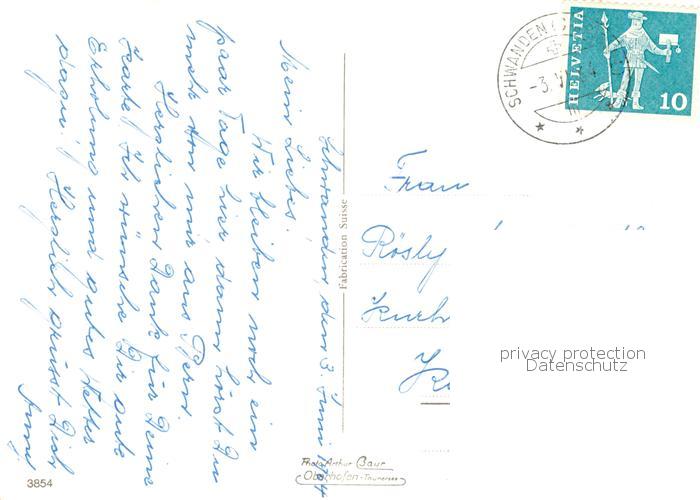 Schwanden, den 3. Juni 1964
Mein Liebes!
Wir bleiben noch ein
paar Tage hier dann hörst Du
mehr von mir aus Bern.
Herzlichen Dank für Deine
Karte! Ich wünsche Dir gute
Erholung und gutes Wetter
dazu! Herzlich grüsst Dich
Fabrication Suisse
SCHWANDEN
-3. VI
HELVETIA
10
Frau
Rösly
Kurh
privacy protection
Datenschutz
Photo Arthur Baur
Oberhofen-Thunersee
3854